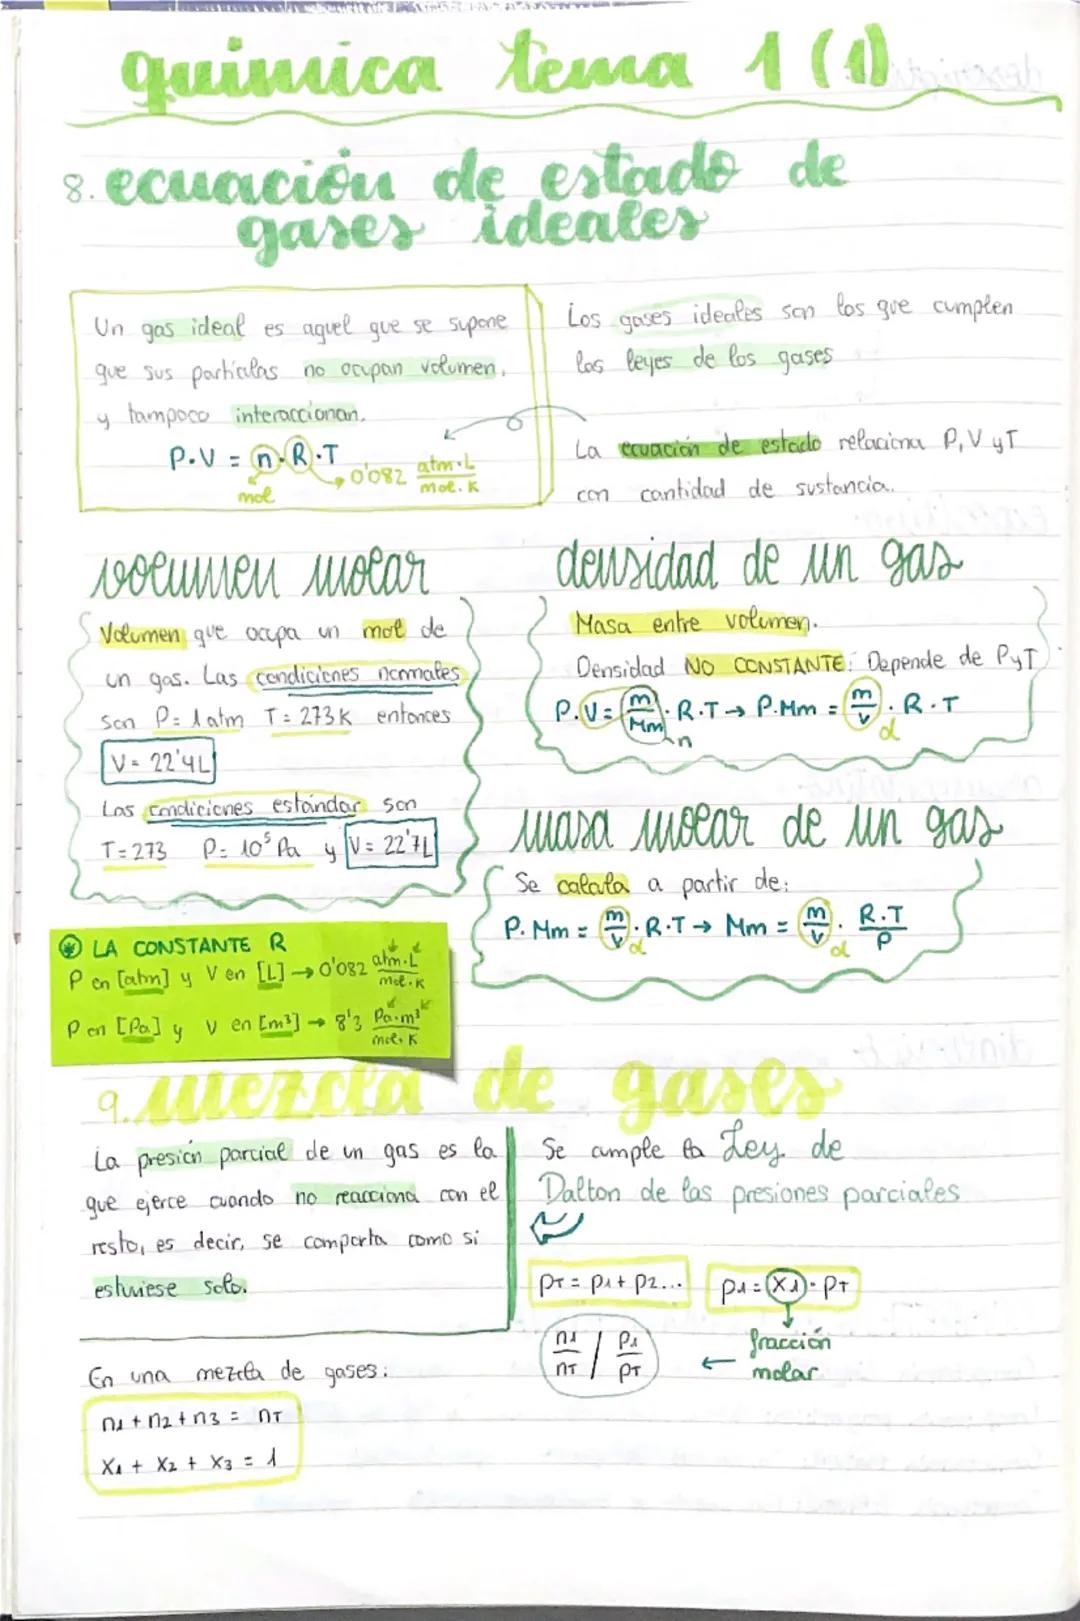 química tema 1 (1)
8. ecuación de estado de
gases ideales
Un gas ideal es aquel que se supone
que sus partículas no ocupan volumen,
y tampoco interaccionan.
P·V = n·R·T
mol
0'082 atm·L / mol·K
Los gases ideales son los que cumplen
las leyes de los gases
La ecuación de estado relaciona P, V y T
con cantidad de sustancia.
volumen molar
Volumen que ocupa un mol de
un gas. Las condiciones normales
son P= 1atm T= 273K entonces
V= 22'4L
Las condiciones estándar son
T=273 P= 10⁵ Pa y V= 22'7L
densidad de un gas
Masa entre volumen.
Densidad NO CONSTANTE: Depende de P y T
P.V= m/Mm · R·T → P·Mm = m/v · R·T
n
d
masa molar de un gas
Se calcula a partir de:
P. Mm = m/v · R·T → Mm = m/v · R·T/P
d
d
LA CONSTANTE R
P en [atm] y V en [L] → 0'082 atm·L / mol·K
P en [Pa] y V en [m³] → 8'3 Pa·m³ / mol·K
9. mezcla de gases
La presión parcial de un gas es la
que ejerce cuando no reacciona con el
resto, es decir, se comporta como si
estuviese solo.
En una mezcla de gases:
n1 + n2 + n3 = nT
X1 + X2 + X3 = 1
Se cumple la Ley de
Dalton de las presiones parciales
PT = P1 + P2...
P1 = X1 · PT
fracción
molar
n1/nT / P1/PT